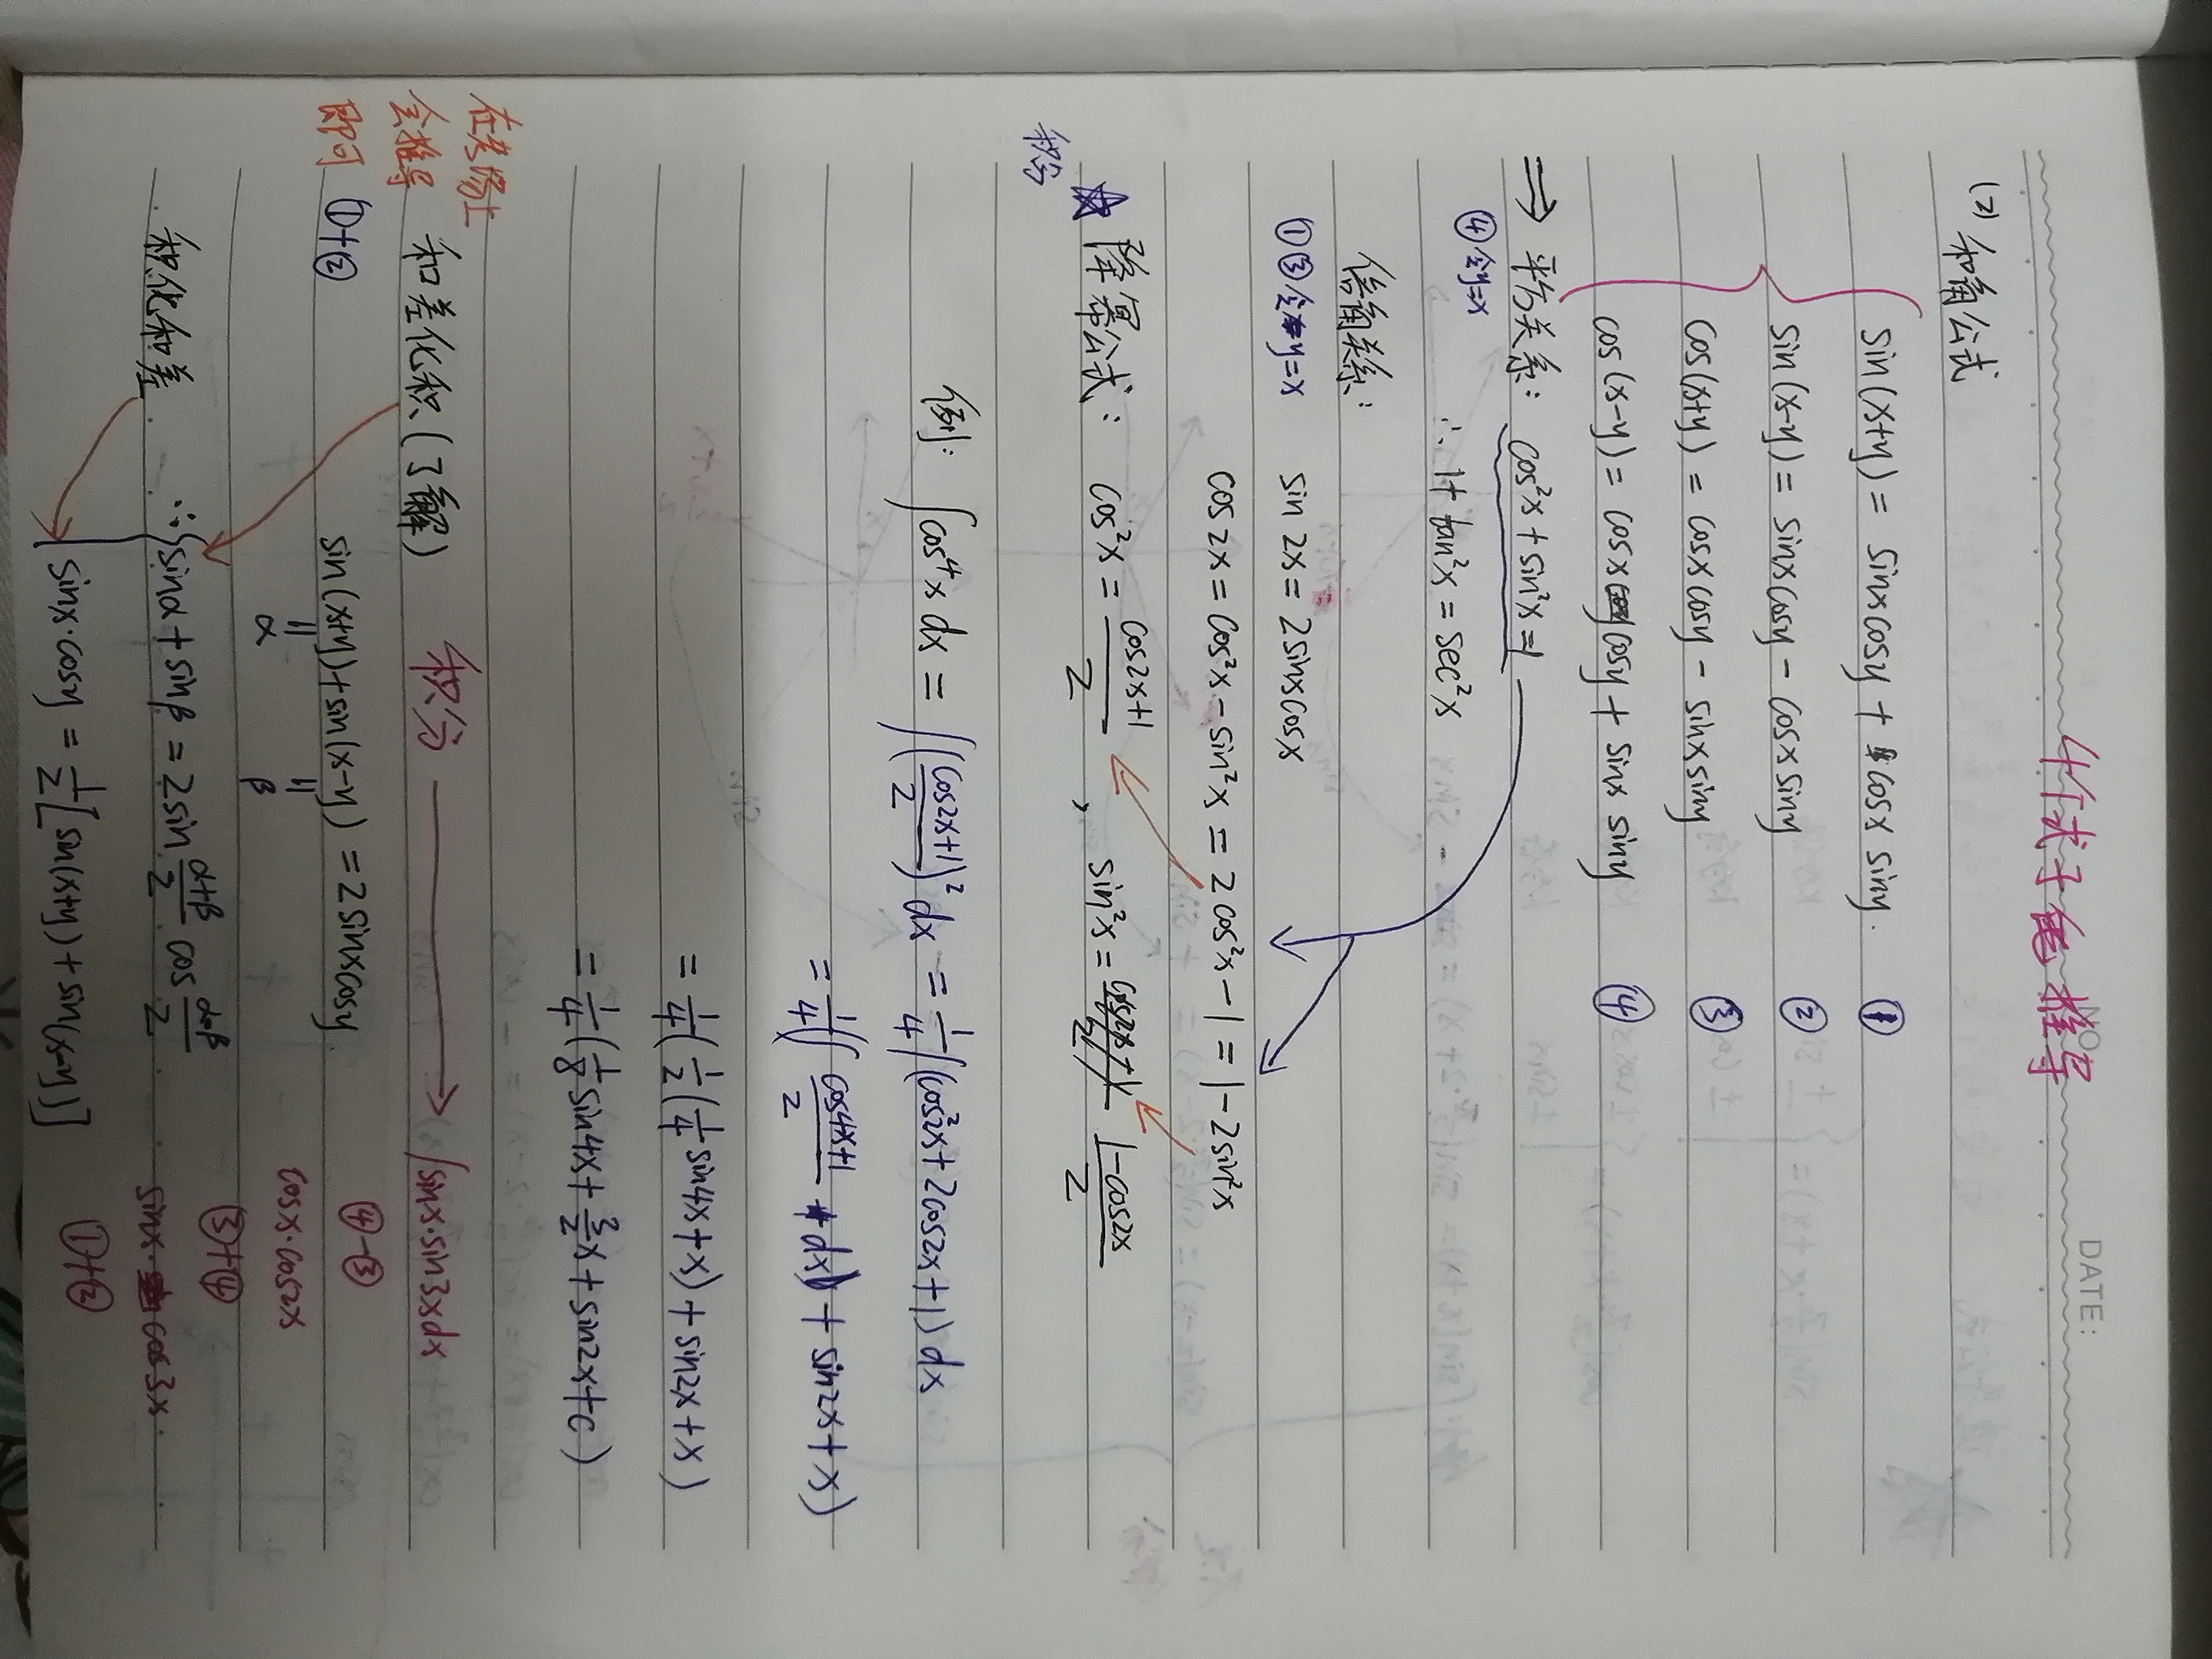 NO.
DATE:
4个式子推导
(2) 和角公式
sin(x+y) = sinxcosy + cosx siny. ①
sin(x-y) = sinxcosy - cosx siny ②
cos(x+y) = cosxcosy - sinxsiny ③
cos(x-y) = cosxcosy + sinx siny ④
⇒ 平方关系: cos²x + sin²x = 1
④令y=x ∴ 1+tan²x = sec²x
倍角关系:
①③令y=x sin 2x = 2sinxcosx
cos2x = cos²x - sin²x = 2cos²x - 1 = 1 - 2sin²x
积分 ☆ 降幂公式: cos²x = (cos2x+1)/2 , sin²x = (1-cos2x)/2
例: ∫cos⁴x dx = ∫((cos2x+1)/2)² dx = 1/4∫(cos²2x + 2cos2x + 1)dx
= 1/4(∫ (cos4x+1)/2 dx + sin2x + x)
= 1/4(1/2(1/4 sin4x + x) + sin2x + x)
= 1/4(1/8 sin4x + 3/2 x + sin2x + c)
在考场上
会推导
即可
和差化积(了解) 积分 → ∫sinx·sin3xdx
①+② sin(x+y)+sin(x-y) = 2sinxcosy ④-③
α β cosx·cos2x
③+④
积化和差 ∴ sinα + sinβ = 2sin (α+β)/2 cos (α-β)/2 sinx·cos3x
sinx·cosy = 1/2[sin(x+y) + sin(x-y)] ①+②